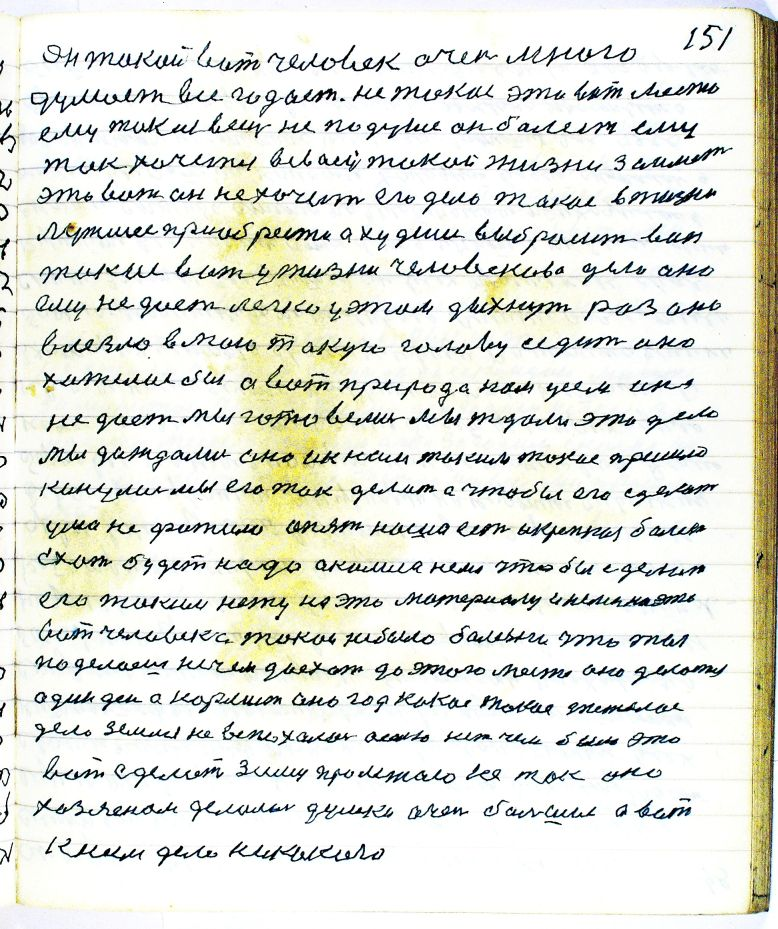 151
Он такой вот человек очен много
думает все гадает. не такое это вот место
ему такая вещ не подуше он балеет ему
так хочется всваей такой жизни занят
это вот он не хочит его дело такое вжизни
лутшее приобрести а худшее выбросит вон
такое вот ужизни человескова дело оно
ему не дает легко уэтом дыхнут раз оно
влезло вмою такую голову седит оно
хателос бы а вот природа нам усем
не дает мы готовелис мы ждали это дело
мы дождалис оно ик нам таким такое пришло
кинулис мы его так делат а чтобы его сделат
ума не фатило опят наша ест
будет надо околила нем чтобы сделат
его таким нету на это материалу на это
вот человека такой небыло что ты
поделаеш нечем доехат до этого места оно делатся
адин ден а кормит оно год какое такое тяжелое
дело земля не вспохалас осеню нет чем было это
вот сделат зиму пролежало не так оно
хозяеном делалос думка очен балшая а вот
к ним дело никакого